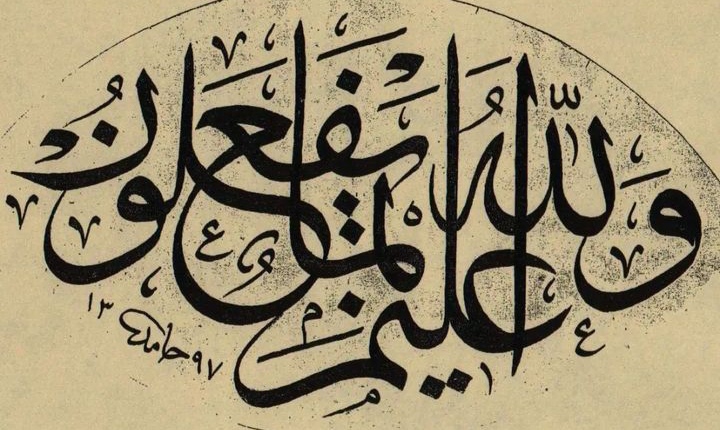 وَاللّٰهُ عَلِيمٌ بِمَا يَفْعَلُونَ
١٣ حامد ٩٧